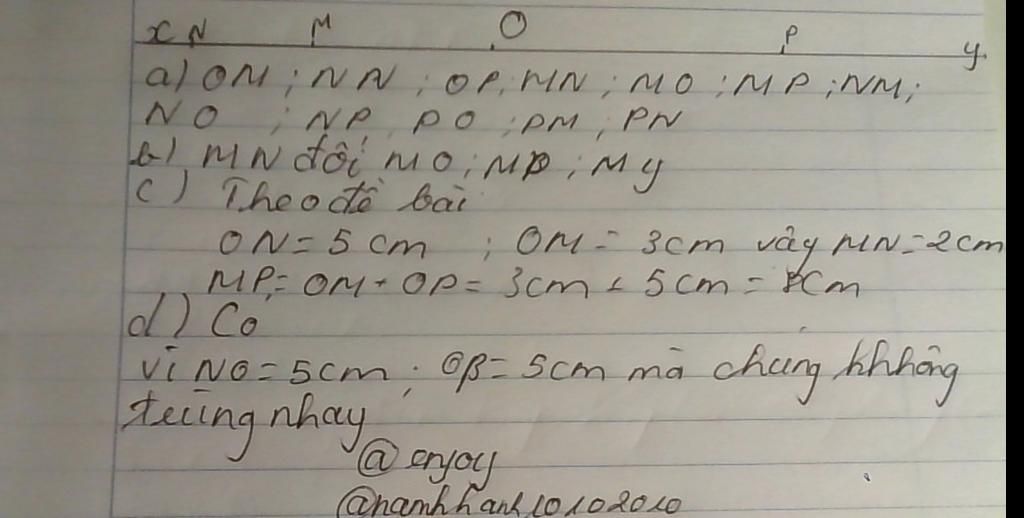 x N M O P y
a) OM ; NN ; OP, MN ; MO ; MP ; NM ;
NO ; NP, PO ; PM ; PN
b) MN đối MO ; MP ; My
c) Theo đề bài
ON = 5 cm ; OM = 3cm vậy MN = 2cm
MP = OM + OP = 3cm + 5cm = 8cm
d) Co
vì NO = 5cm ; OP = 5cm mà chúng khhông
trùng nhay
@enjoy
@hanhhanh10102010